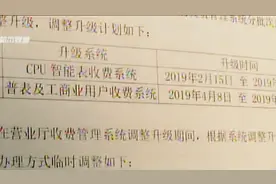 升级，调整升级计划如下：
升级系统
升级时间
CPU智能表收费系统
2019年2月15日 至 2019
普表及工商业用户收费系统
2019年4月8日 至 2019
在营业厅收费管理系统调整升级期间，根据系统调整升
办理方式临时调整如下：